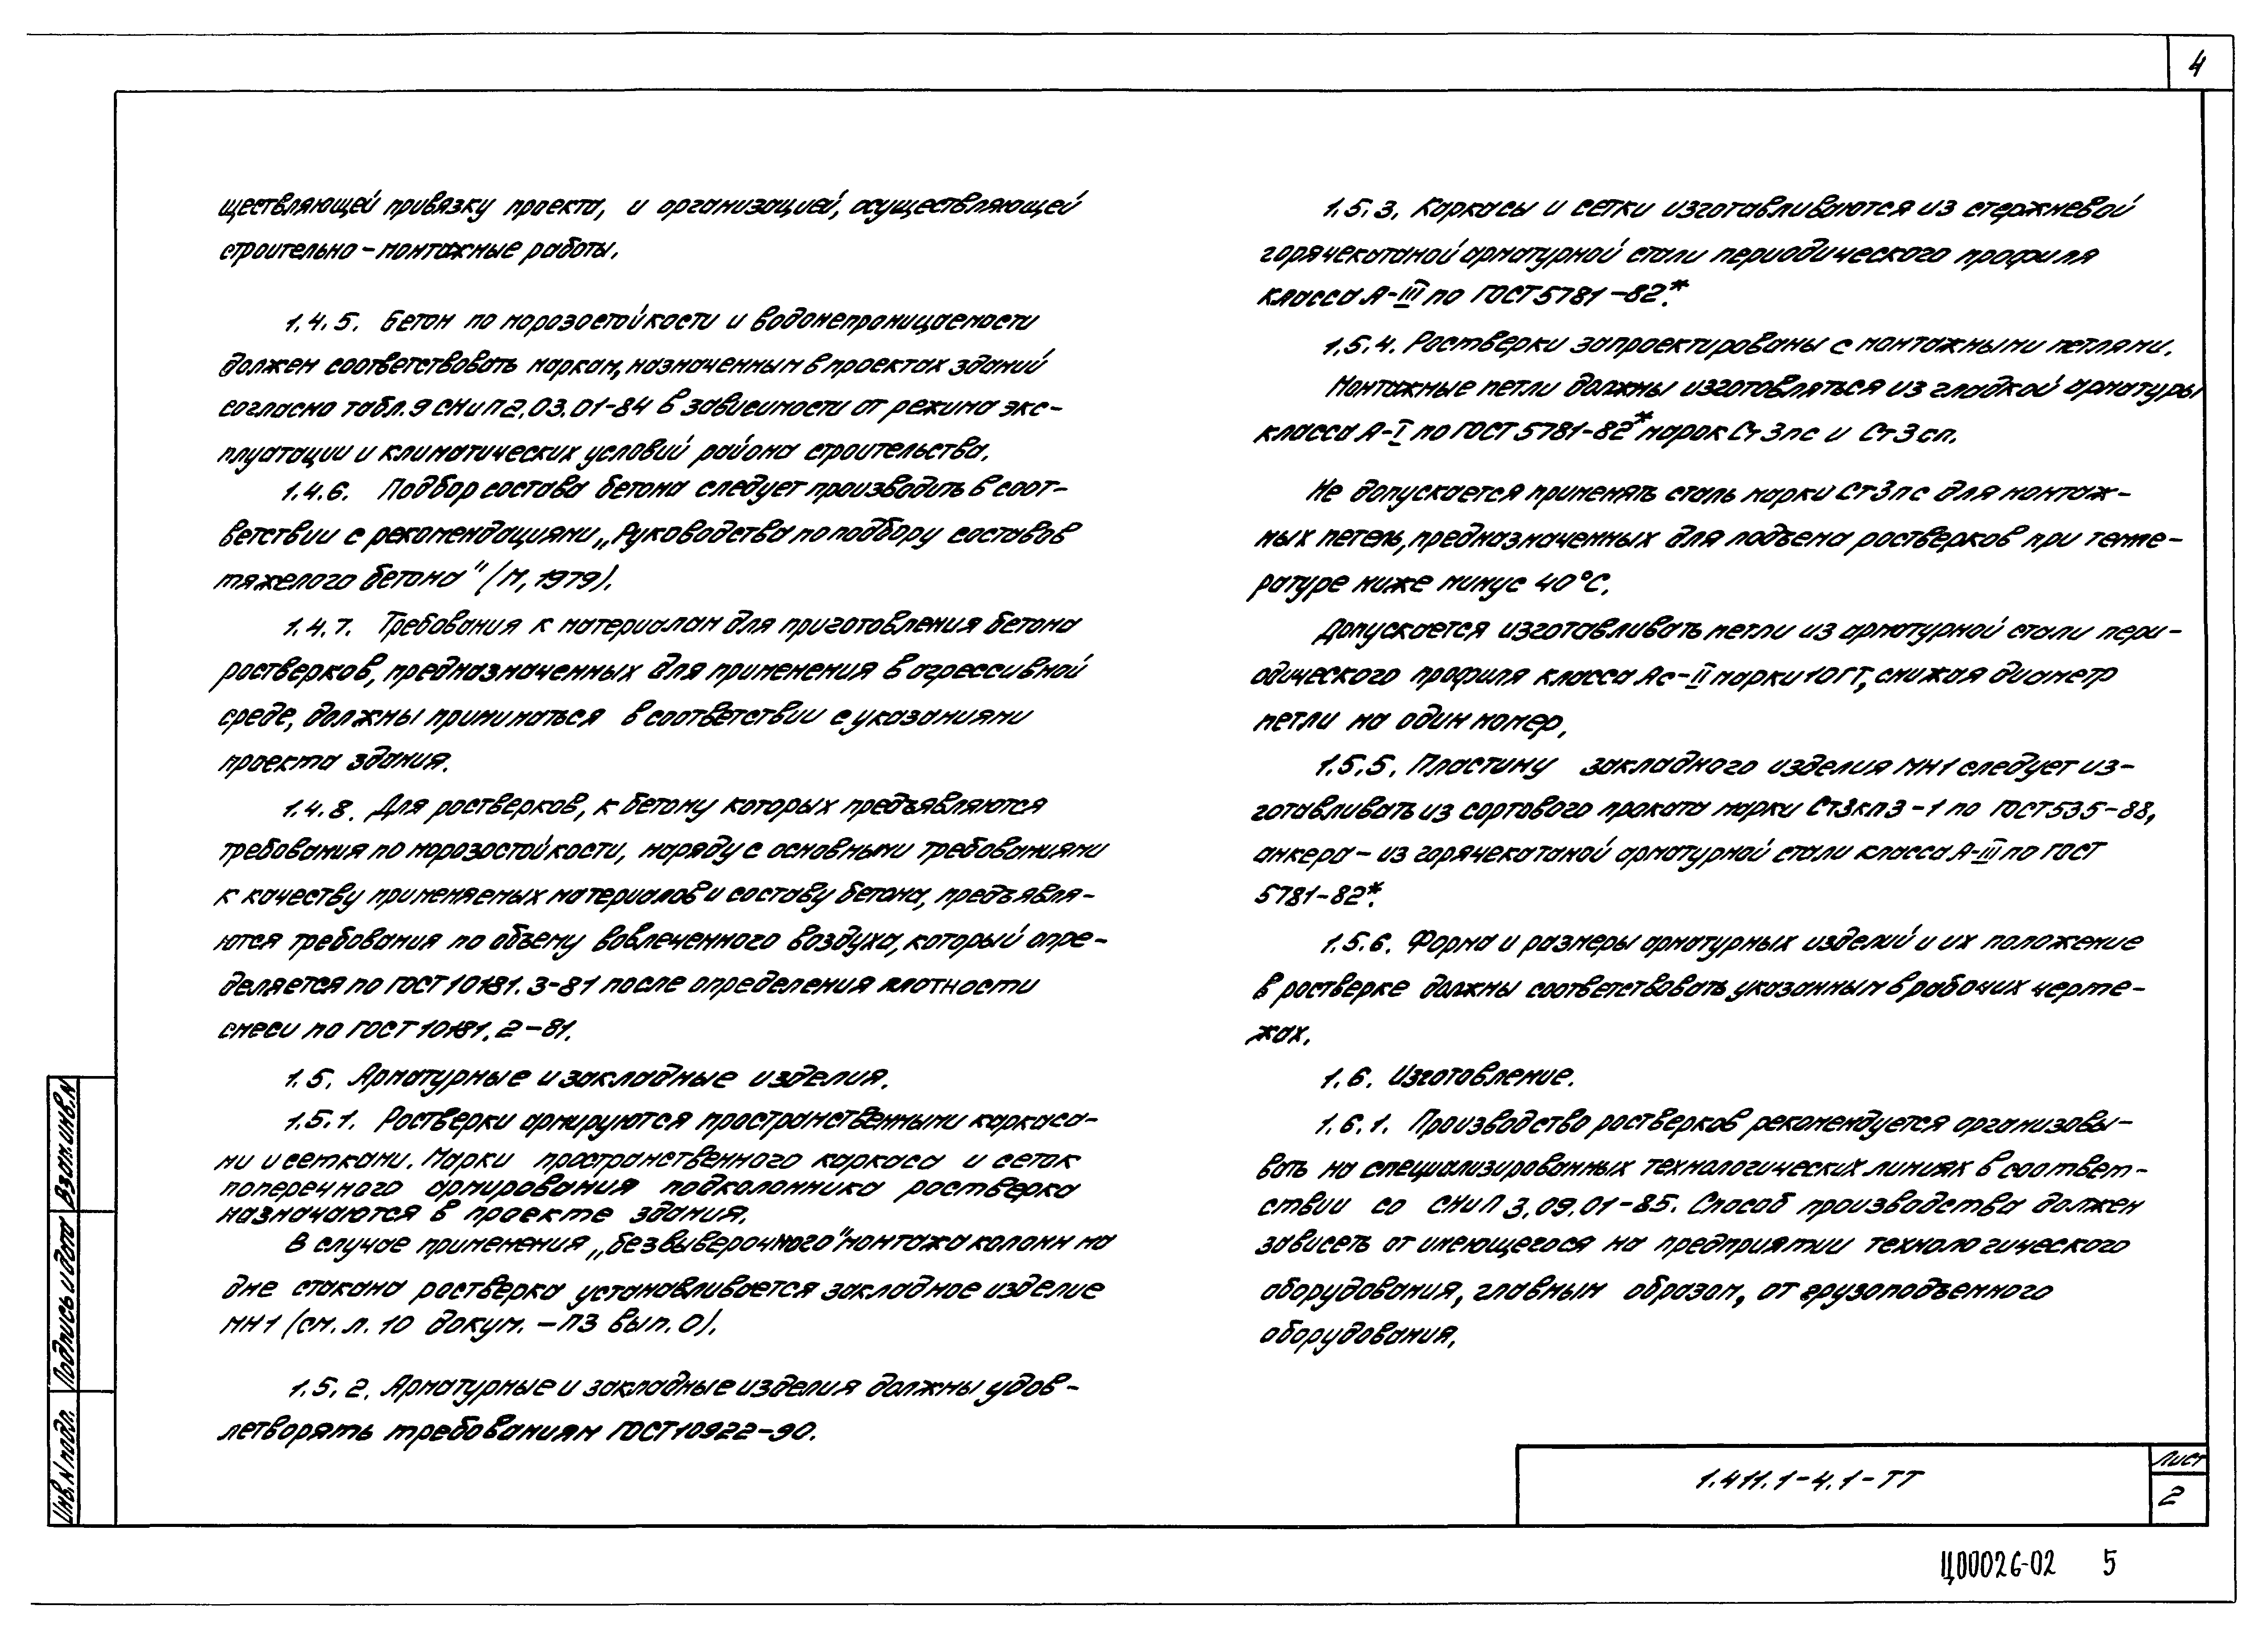 4
ществляющей привязку проекта, и организацией, осуществляющей
строительно-монтажные работы.
1.4.5. Бетон по морозостойкости и водонепроницаемости
должен соответствовать маркам, назначенным в проектах зданий
согласно табл.9 СНиП 2.03.01-84 в зависимости от режима экс-
плуатации и климатических условий района строительства.
1.4.6. Подбор состава бетона следует производить в соот-
ветствии с рекомендациями „Руководства по подбору составов
тяжелого бетона" (М, 1979).
1.4.7. Требования к материалам для приготовления бетона
ростверков, предназначенных для применения в агрессивной
среде, должны приниматься в соответствии с указаниями
проекта здания.
1.4.8. Для ростверков, к бетону которых предъявляются
требования по морозостойкости, наряду с основными требованиями
к качеству применяемых материалов и составу бетона, предъявля-
ются требования по объему вовлеченного воздуха, который опре-
деляется по ГОСТ 10181.3-81 после определения плотности
смеси по ГОСТ 10181.2-81.
1.5. Арматурные и закладные изделия.
1.5.1. Ростверки армируются пространственными каркаса-
ми и сетками. Марки пространственного каркаса и сеток
поперечного армирования подколонника ростверка
назначаются в проекте здания.
В случае применения „безвыверочного" монтажа колонн на
дне стакана ростверка устанавливается закладное изделие
МН1 (см. л. 10 докум. -ПЗ вып. 0).
1.5.2. Арматурные и закладные изделия должны удов-
летворять требованиям ГОСТ 10922-90.
1.5.3. Каркасы и сетки изготавливаются из стержневой
горячекатаной арматурной стали периодического профиля
класса А-III по ГОСТ 5781-82*.
1.5.4. Ростверки запроектированы с монтажными петлями.
Монтажные петли должны изготовляться из гладкой арматуры
класса А-I по ГОСТ 5781-82* марок Ст3пс и Ст3сп.
Не допускается применять сталь марки Ст3пс для монтаж-
ных петель, предназначенных для подъема ростверков при темпе-
ратуре ниже минус 40°С.
Допускается изготавливать петли из арматурной стали пери-
одического профиля класса Ас-II марки 10ГТ, снижая диаметр
петли на один номер.
1.5.5. Пластину закладного изделия МН1 следует из-
готавливать из сортового проката марки Ст3кп3-1 по ГОСТ 535-88,
анкера - из горячекатаной арматурной стали класса А-III по ГОСТ
5781-82*.
1.5.6. Форма и размеры арматурных изделий и их положение
в ростверке должны соответствовать указанным в рабочих черте-
жах.
1.6. Изготовление.
1.6.1. Производство ростверков рекомендуется организовы-
вать на специализированных технологических линиях в соответ-
ствии со СНиП 3.09.01-85. Способ производства должен
зависеть от имеющегося на предприятии технологического
оборудования, главным образом, от грузоподъемного
оборудования.
Инв.N подл.
Подпись и дата
Взам.инв.N
1.411.1-4.1-ТТ
Лист
2
Ц00026-02 5